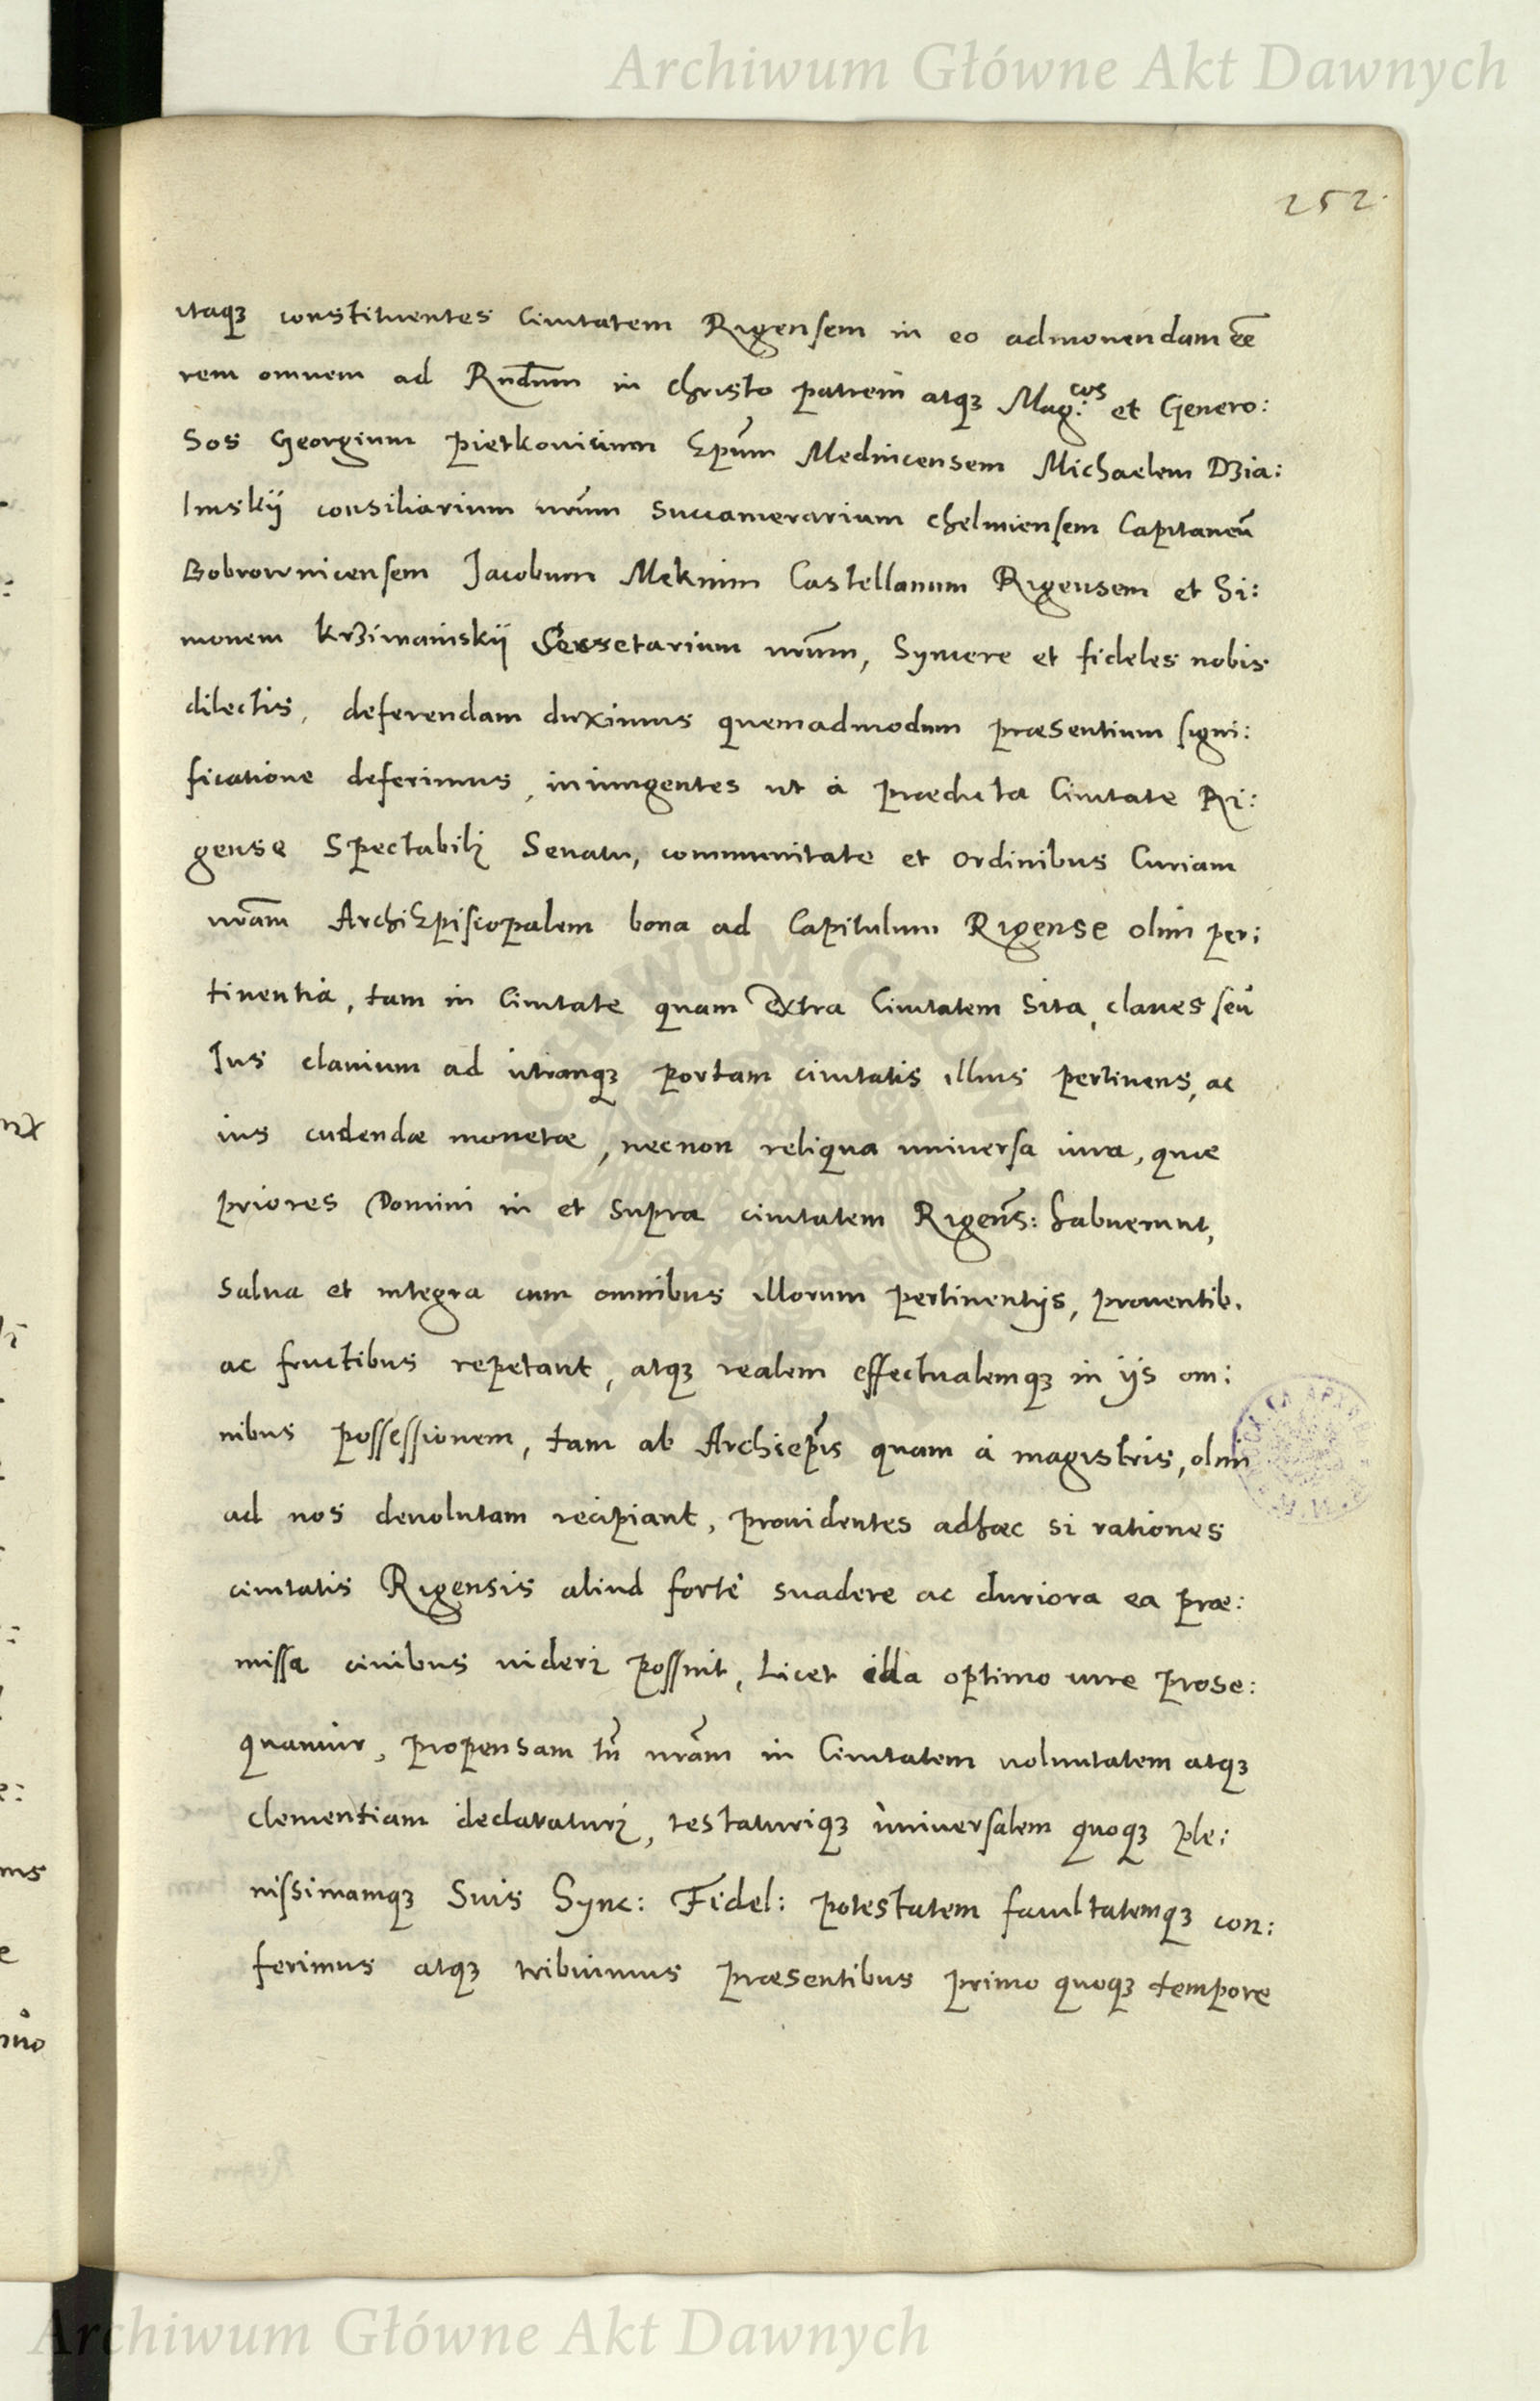 Archiwum Główne Akt Dawnych
252.
itaqꝫ constituentes Ciuitatem Rigensem in eo admonendam eẽ
rem omnem ad Rndum̃ in christo patrem atqꝫ Mag:cos et Genero:
Sos Georgium pietkouisium Epũm Mednicensem Michaelem Dzia:
linskÿ consiliarium nrũm Succamerarium chelmiensem Capitaneũ
Bobrownicensem Jacobum Meknim Castellanum Rigensem et Si:
monem krzimainskÿ Secretarium nrũm, Syncere et fideles nobis
dilectis, deferendam duximus quemadmodum præsentium signi:
ficatione deferimus, iniungentes ut à prædicta Ciuitate Ri:
gense Spectabili Senatu, communitate et ordinibus Curiam
nrãm ArchiEpiscopalem bona ad Capitulum Rigense olim per:
tinentia, tam in Ciuitate quam extra Ciuitatem Sita, claues seu
Jus clauium ad utranqꝫ portam ciuitatis illius pertinens, ac
ius cudendæ monetæ, necnon reliqua uniuersa iura, quæ
priores Domini in et supra ciuitatem Rigens̃: habuerunt,
Salua et integra cum omnibus illorum pertinentijs, prouentib.
ac fructibus repetant, atqꝫ realem effectualemqꝫ in ijs om:
nibus possessionem, tam ab Archiep̃is quam à magistris, olim
ad nos deuolutam recipiant, prouidentes adhæc si rationes
ciuitatis Rigensis aliud fortè suadere ac duriora ea præ:
missa ciuibus uideri possint, Licet illa optimo iure prose:
quamur, propensam tñ nrãm in Ciuitatem uoluntatem atqꝫ
clementiam declaraturi, testaturiqꝫ uniuersalem quoqꝫ ple:
nissimamqꝫ Suis Sync: Fidel: potestatem facultatemqꝫ con:
ferimus atqꝫ tribuimus præsentibus primo quoqꝫ tempore
Archiwum Główne Akt Dawnych